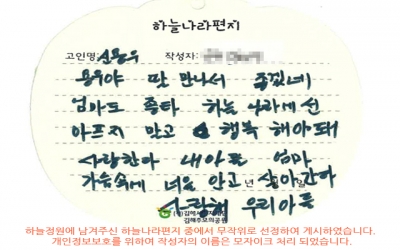 하늘나라편지
고인명: 신용우 작성자:
용우야 만나서 좋겠네
엄마도 좋타 하늘 나라에선
아프지 말고 행복 해야돼
사랑한다 내아들 엄마
가슴속에 너을 안고 살아간다
년 일
사랑해 우리아들
김해추모의공원
하늘정원에 남겨주신 하늘나라편지 중에서 무작위로 선정하여 게시하였습니다.
개인정보보호를 위하여 작성자의 이름은 모자이크 처리 되었습니다.